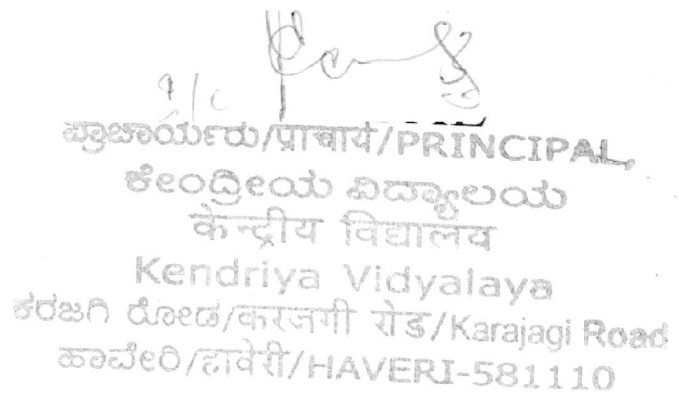 I/c
ಪ್ರಾಚಾರ್ಯರು/प्राचार्य/PRINCIPAL
ಕೇಂದ್ರೀಯ ವಿದ್ಯಾಲಯ
केन्द्रीय विद्यालय
Kendriya Vidyalaya
ಕರಜಗಿ ರೋಡ/करजगी रोड/Karajagi Road
ಹಾವೇರಿ/हावेरी/HAVERI-581110